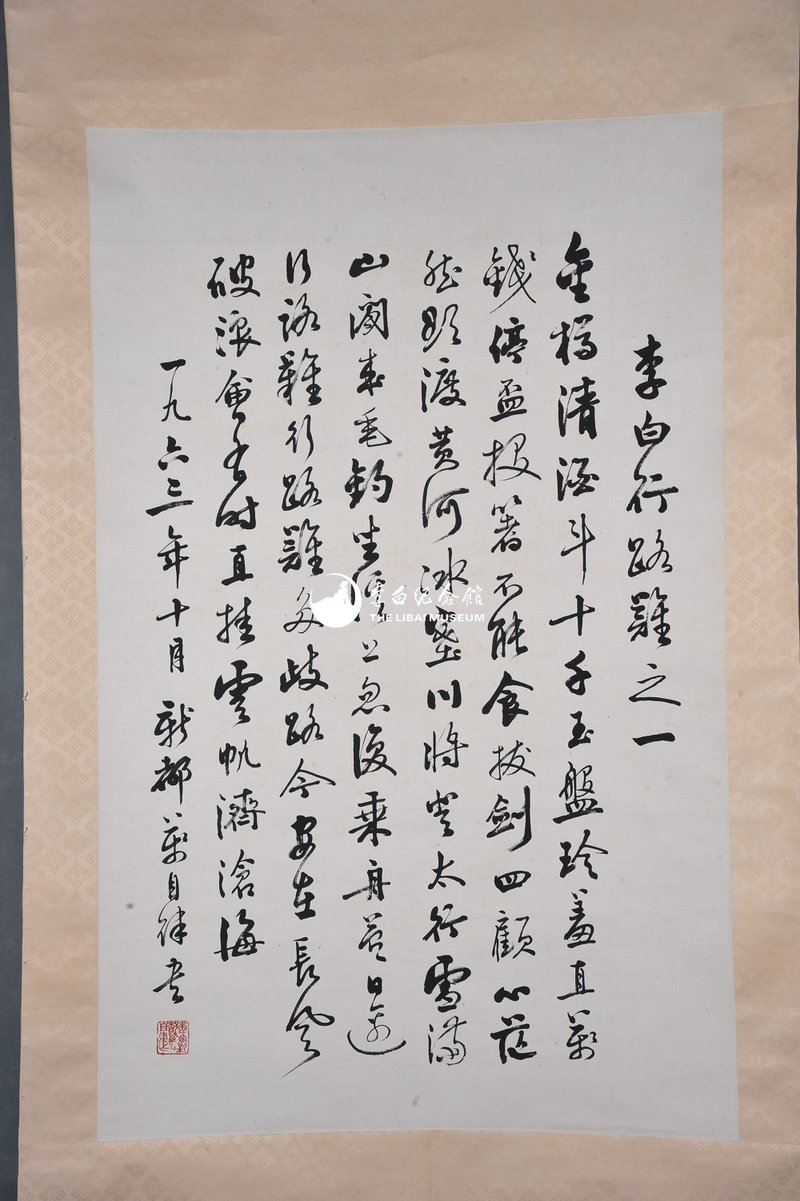 李白行路難之一
金樽清酒斗十千玉盤珍羞直萬
錢停盃投箸不能食拔劍四顧心茫
然欲渡黃河冰塞川將登太行雪滿
山閑來垂釣坐溪上忽復乘舟夢日邊
行路難行路難多歧路今安在長風
破浪會有時直挂雲帆濟滄海
一九六三年十月新都萬自律书
李白纪念館
THE LIBAI MUSEUM